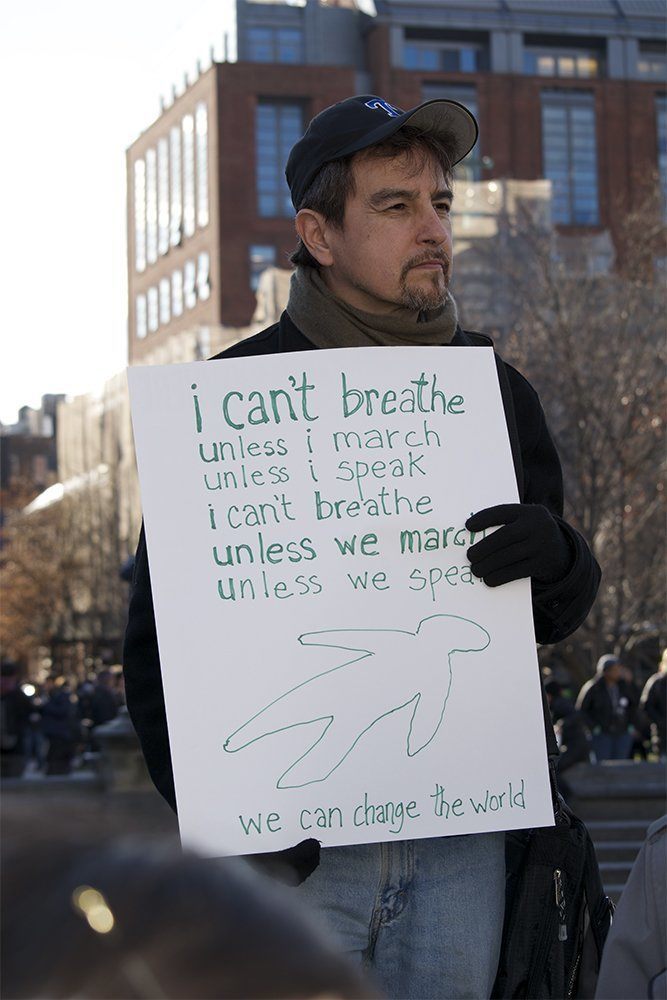 i can't breathe
unless i march
unless i speak
i can't breathe
unless we march
unless we spea
we can change the world